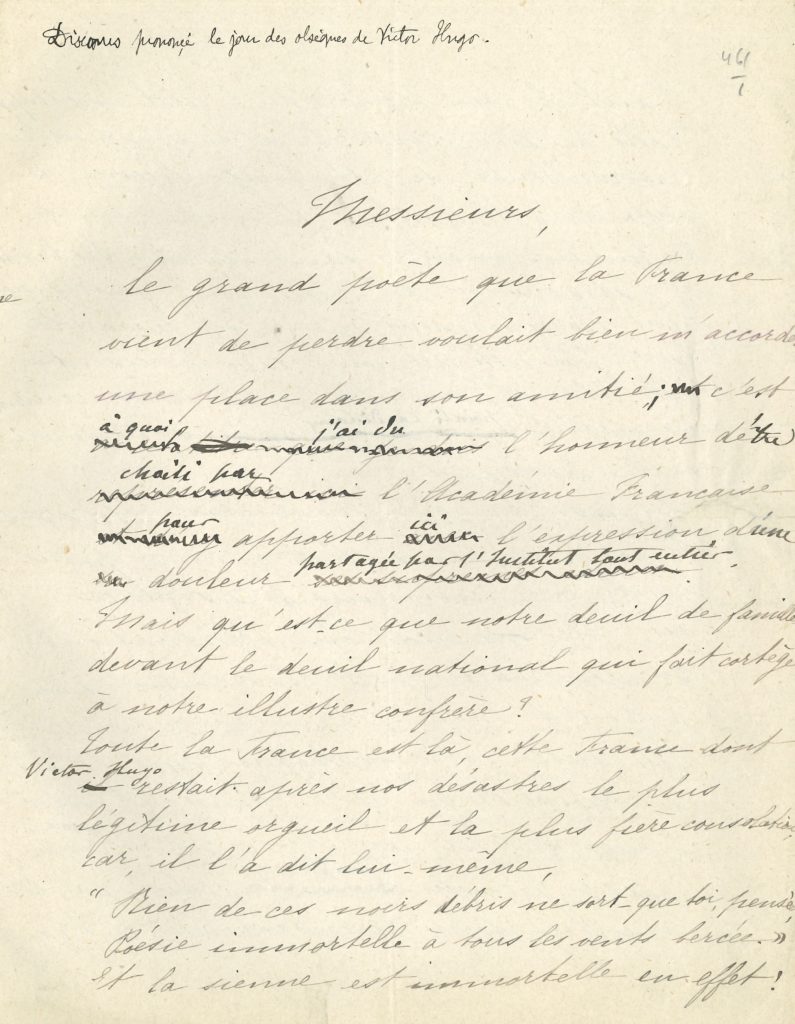 Discours prononçé le jour des obsèques de Victor Hugo.
461
1
Messieurs,
le grand poëte que la France
vient de perdre voulait bien m'accorder
une place dans son amitié; c'est
à quoi j'ai du l'honneur d'être
choisi par l'Académie Française
pour apporter ici l'expression d'une
douleur partagée par l'Institut tout entier.
Mais qu'est-ce que notre deuil de famille
devant le deuil national qui fait cortège
à notre illustre confrère?
Toute la France est là, cette France dont
Victor Hugo restait après nos désastres le plus
légitime orgueil et la plus fière consolation,
car, il l'a dit lui-même,
" Rien de ces noirs débris ne sort que toi, pensée,
Poésie immortelle à tous les vents bercée. »
Et la sienne est immortelle en effet!